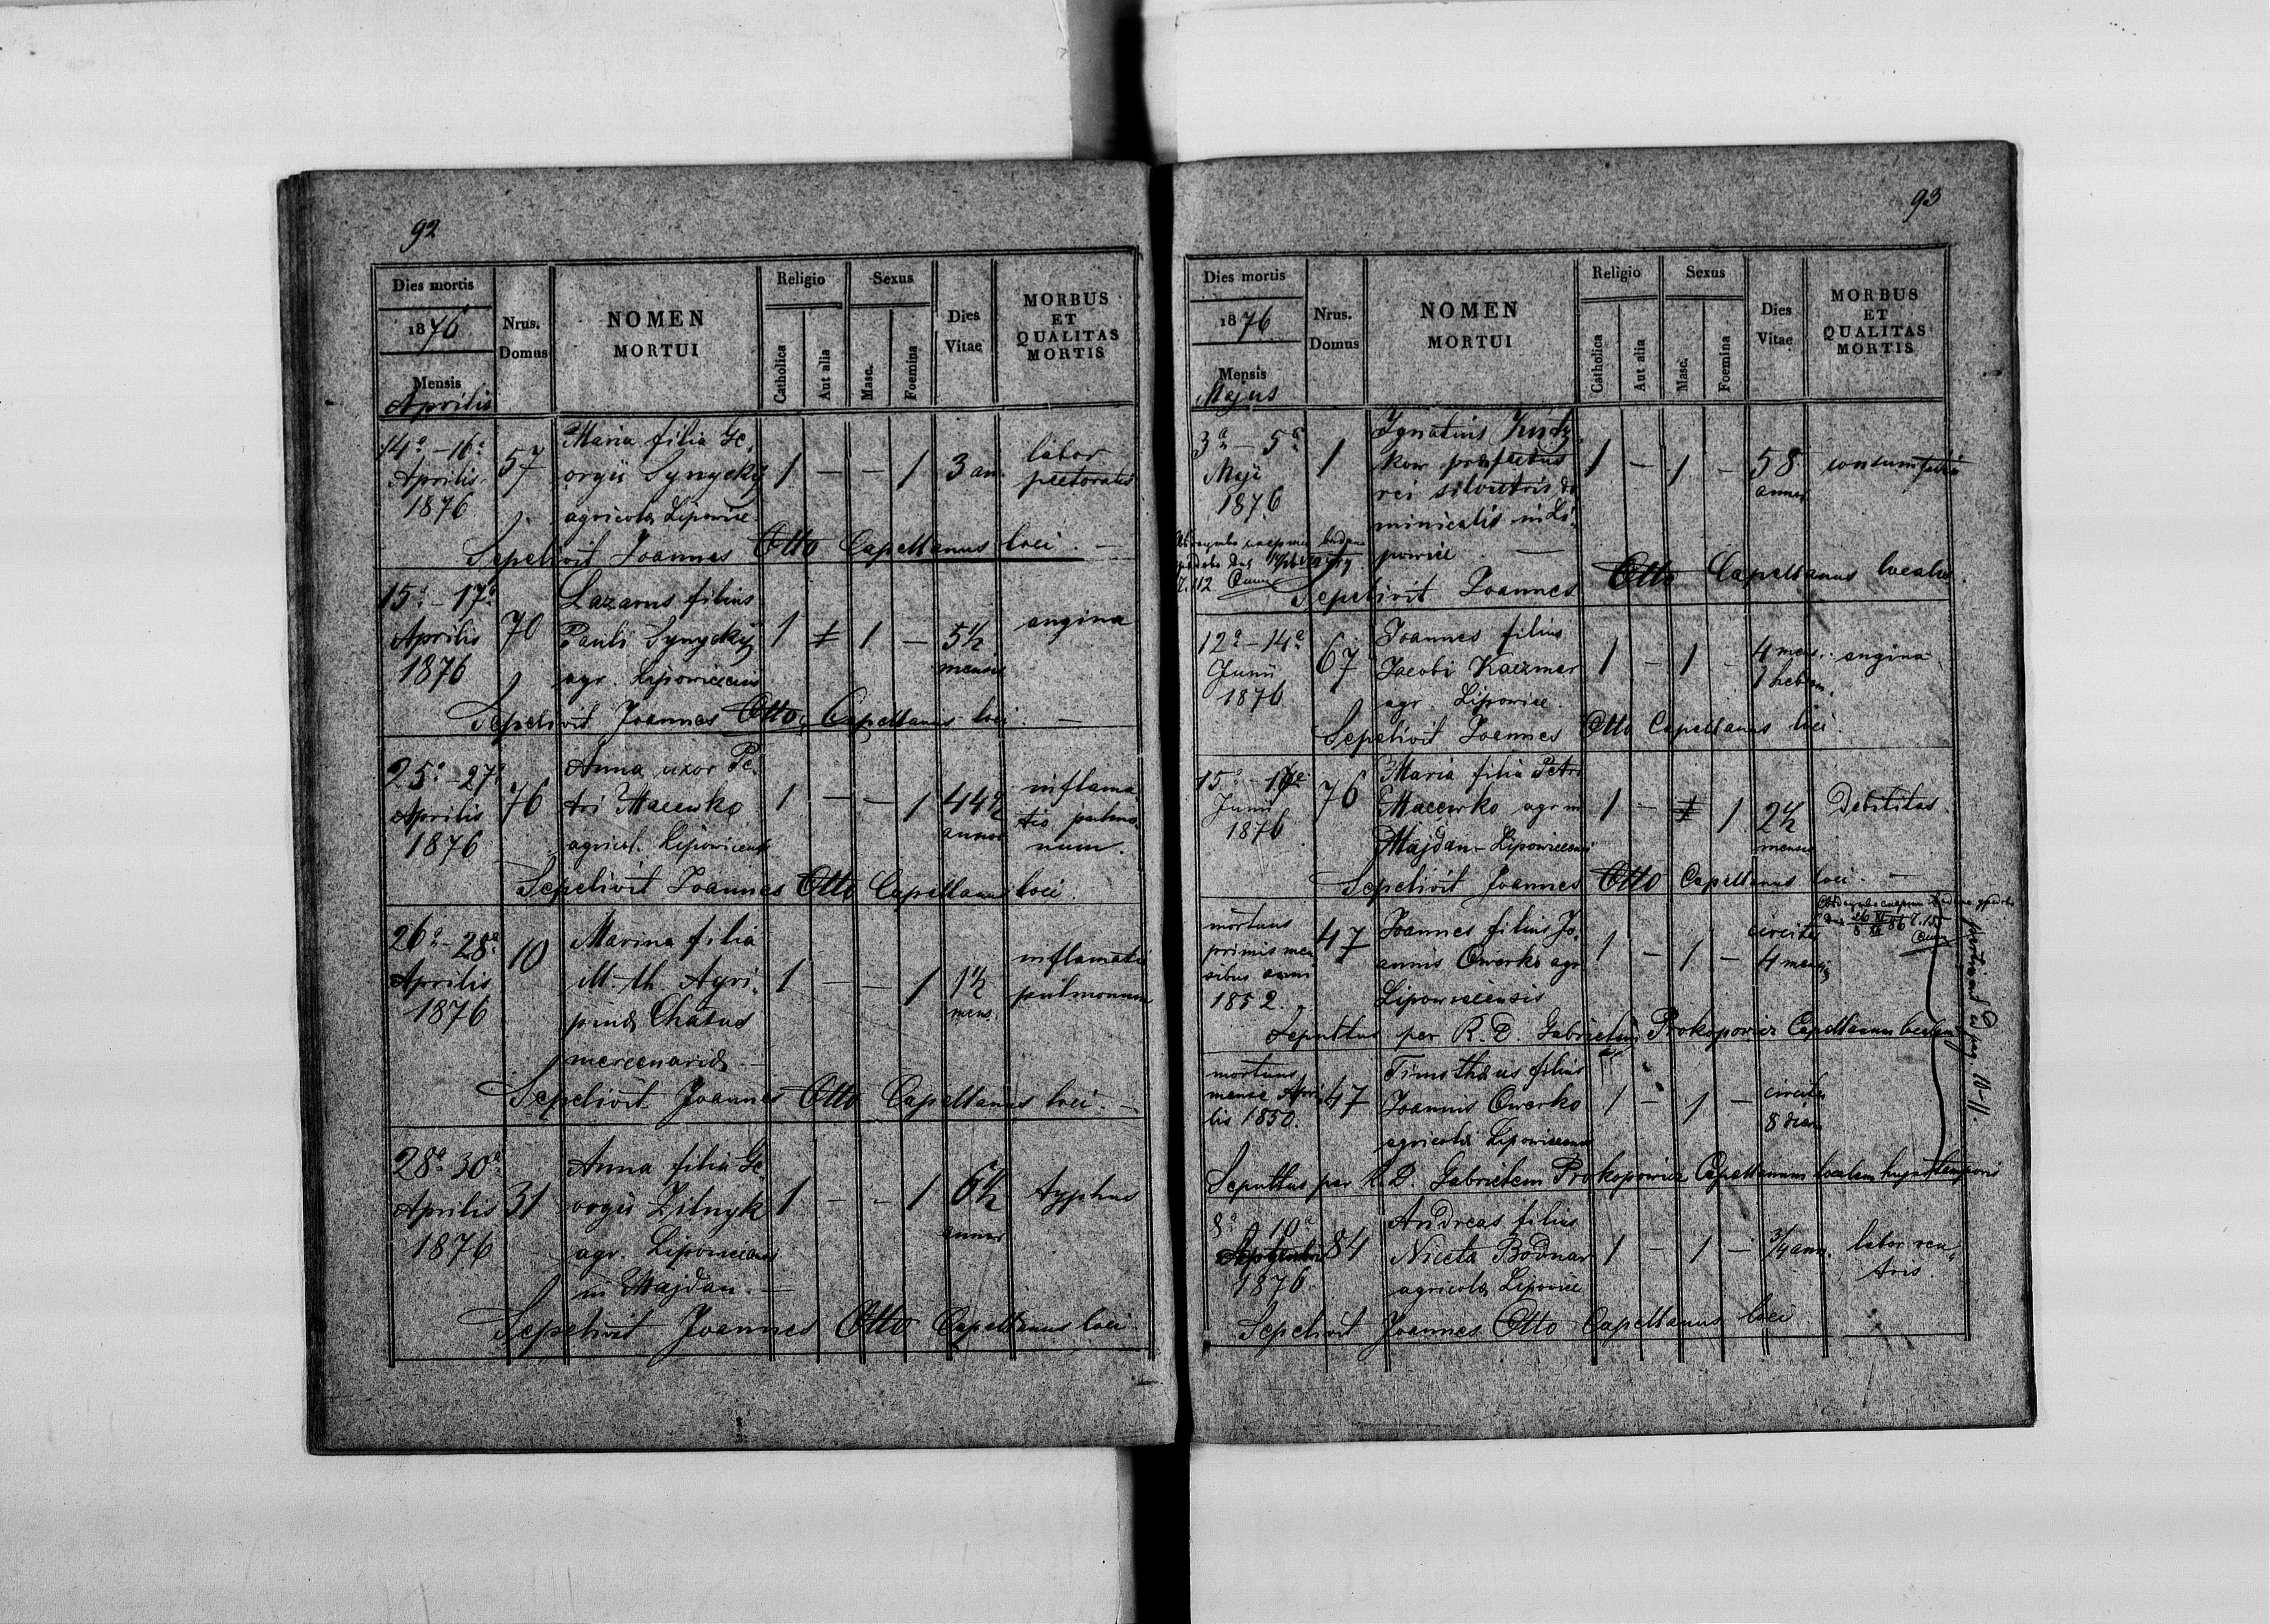 92
Dies mortis
1876
Mensis
Aprilis
Nrus.
Domus
NOMEN
MORTUI
Religio
Catholica
Aut alia
Sexus
Masc.
Foemina
Dies
Vitae
MORBUS
ET
QUALITAS
MORTIS
14a - 16a
Aprilis
1876
57
Maria filia Ge,
orgii Synycky
agricola Lipowice
1 — — 1
3 an.
labor
pectoratis
Sepelivit Joannes Otto Capellanus loci. —
15a - 17a
Aprilis
1876
70
Lazarus filius
Pauli Synycky
agr. Lipowicensis
1 1 —
5½
mensis
angina
Sepelivit Joannes Otto, Capellanus loci. —
25a - 27a
Aprilis
1876
76
Anna uxor Pe,
tri Macewko
agricol. Lipowicensis
1 — — 1
44½
annor
inflama,
tio pulmo,
num.
Sepelivit Joannes Otto Capellanus loci.
26a - 28a
Aprilis
1876
10
Marina filia
ill. th. Agri,
pinæ Chabus
mercenaria —
1 — — 1
1½
mens.
inflamatio
pulmonum
Sepelivit Joannes Otto Capellanus loci. —
28a 30a
Aprilis
1876
31
Anna filia Ge,
orgii Zilnyk
agr. Lipowicensis
in Majdan. —
1 — — 1
6½
annor
typhus
Sepelivit Joannes Otto Capellanus loci
93
Dies mortis
1876
Mensis
Majus
Nrus.
Domus
NOMEN
MORTUI
Religio
Catholica
Aut alia
Sexus
Masc.
Foemina
Dies
Vitae
MORBUS
ET
QUALITAS
MORTIS
3a — 5a
Maji
1876
1
Ignatius
præfectus
rei silvestris do
minicalis in Li,
powice —
1 — 1 —
58
annor
consumptio
Sepelivit Joannes Otto Capellanus localis.
12a - 14a
Junii
1876
67
Joannes filius
Jacobi Kaczmar
agr. Lipowice.
1 — 1 —
4 mens.
1 hebdom.
angina
Sepelivit Joannes Otto Capellanus loci.
15a -
Junii
1876
76
Maria filia Petri
Macewko agr in
Majdan - Lipowicensi
1 — 1
2½
mensis
Debilitas.
Sepelivit Joannes Otto Capellanus loci. —
mortuus
primis men
sibus anni
1852.
47
Joannes filius Jo,
annis Owerko agr
Lipowicensis
1 — 1 —
circiter
4 mensis
Sepultus per R. D. Gabrielem Prokopowicz Capellanum localem
mortuus
mense Apri
lis 1850.
47
Timotheus filius
Joannis Owerko
agricola Lipowicensis
1 — 1 —
circiter
8 dies
Sepultus per R. D. Gabrielem Prokopowicz Capellanum localem hujus temporis
pertinent ad pag. 10-11.
8a 10a
Septembris
1876
84
Andreas filius
Niceta Bodnar
agricola Lipowice
1 — 1 —
¾ ann.
labor ven,
tris.
Sepelivit Joannes Otto Capellanus loci